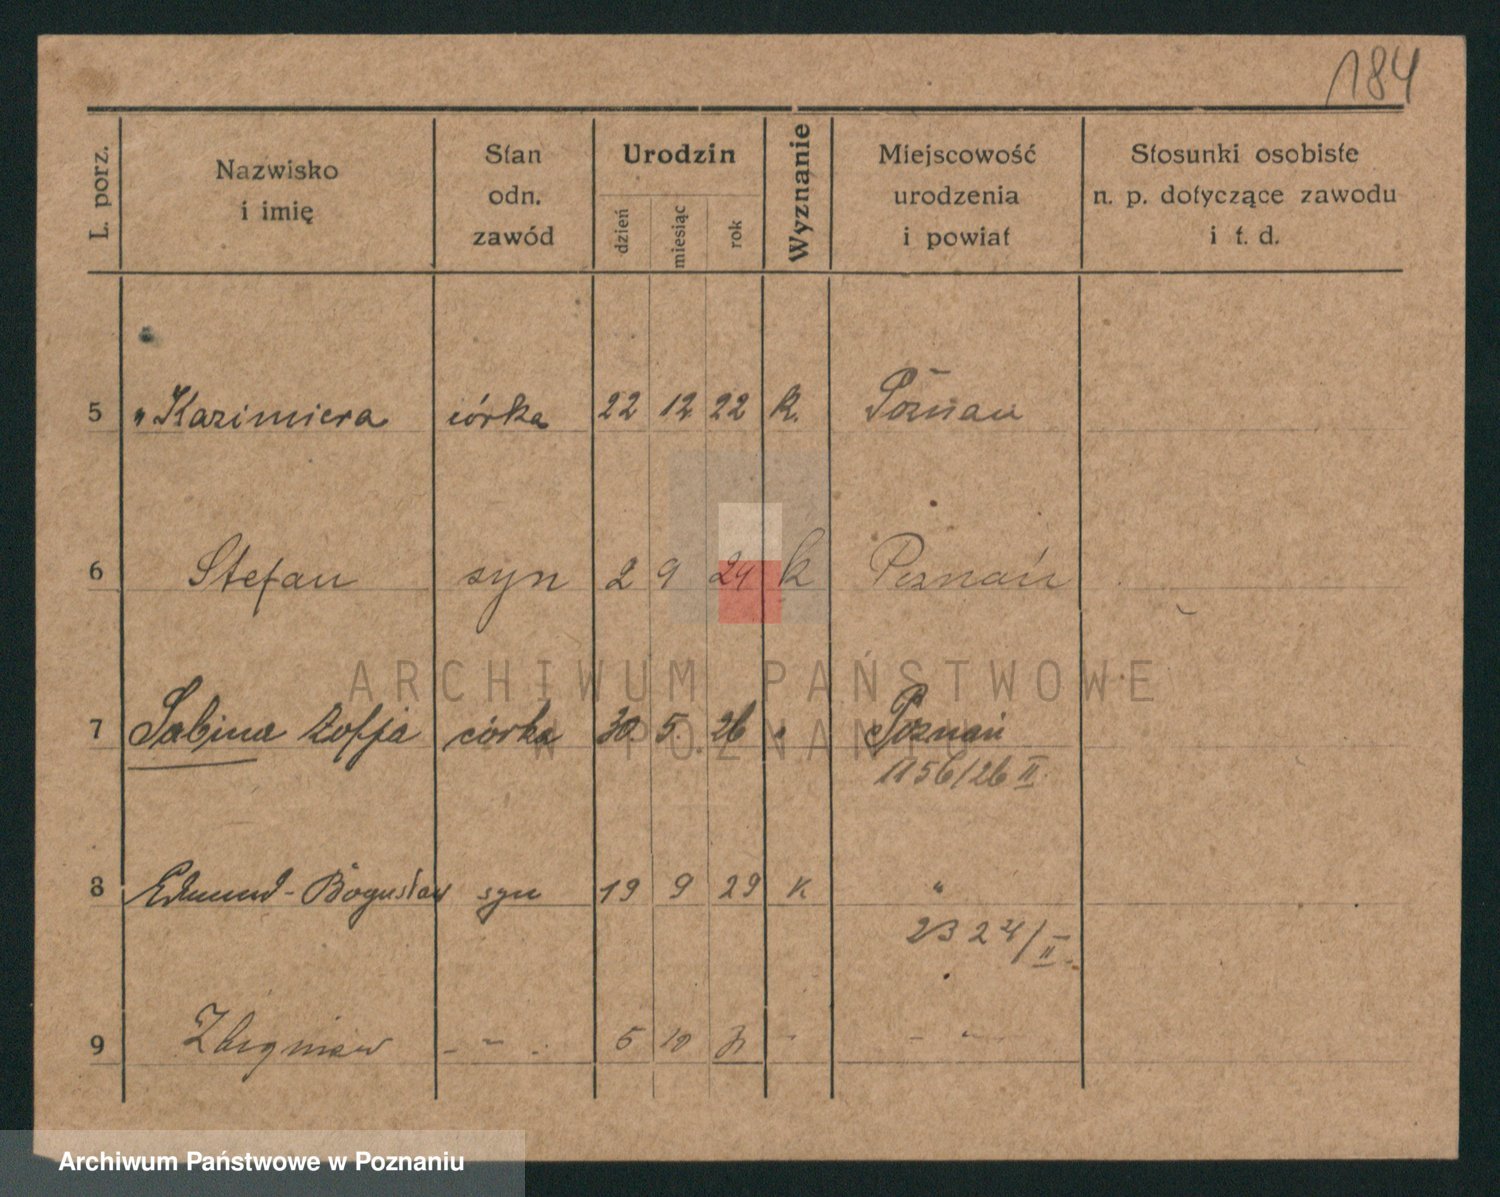 184
L. porz. Nazwisko i imię Stan odn. zawód Urodzin dzień miesiąc rok Wyznanie Miejscowość urodzenia i powiat Stosunki osobiste n. p. dotyczące zawodu i t. d.
5 " Kazimiera córka 22 12 22 K. Poznań
6 Stefan syn 2 9 24 k Poznań
ARCHIWUM PAŃSTWOWE
7 Sabina Zofja córka 30. 5. 26 " Poznań
W POZNANIU
1156/26 II.
8 Edmund-Bogusław syn 19 9 29 K "
2324/II
9 Zbigniew - " - 5 10 - " -
Archiwum Państwowe w Poznaniu